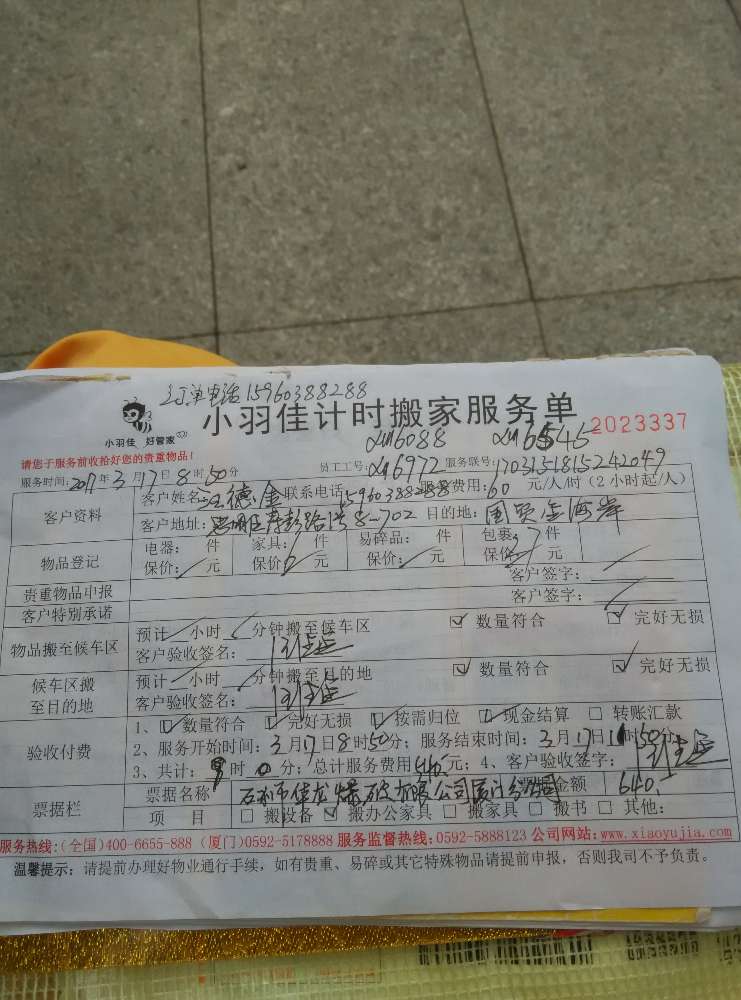 订单电话15960388288
小羽佳 好管家
小羽佳计时搬家服务单 2023337
请您于服务前收拾好您的贵重物品!
XM6088 XM6545
服务时间:2017年3月17日8时50分 员工工号:XM6972 服务联号:1703151815242049
客户资料
客户姓名:汪德金 联系电话:15960388288 服务费用:60 元/人/时 (2小时起/人)
客户地址: 8-702 目的地:国贸金海岸
物品登记
电器: 件 家具: 件 易碎品: 件 包裹: 件
保价: 元 保价: 元 保价: 元 保价: 元
贵重物品申报 客户签字:
客户特别承诺 客户签字:
物品搬至候车区
预计 小时 分钟搬至候车区 ☑ 数量符合 ☑ 完好无损
客户验收签名:
候车区搬至目的地
预计 小时 分钟搬至目的地 ☑ 数量符合 ☑ 完好无损
客户验收签名:
验收付费
1、☑ 数量符合 ☑ 完好无损 ☑ 按需归位 ☑ 现金结算 □ 转账汇款
2、服务开始时间:3月17日8时50分; 服务结束时间:3月17日11时50分;
3、共计: 时0分; 总计服务费用 元; 4、客户验收签字:
票据栏
票据名称 金额 640.
项 目 □ 搬设备 ☑ 搬办公家具 □ 搬家具 □ 搬书 □ 其他:
服务热线:(全国)400-6655-888 (厦门)0592-5178888 服务监督热线:0592-5888123 公司网站:www.xiaoyujia.com
温馨提示: 请提前办理好物业通行手续,如有贵重、易碎或其它特殊物品请提前申报,否则我司不予负责。